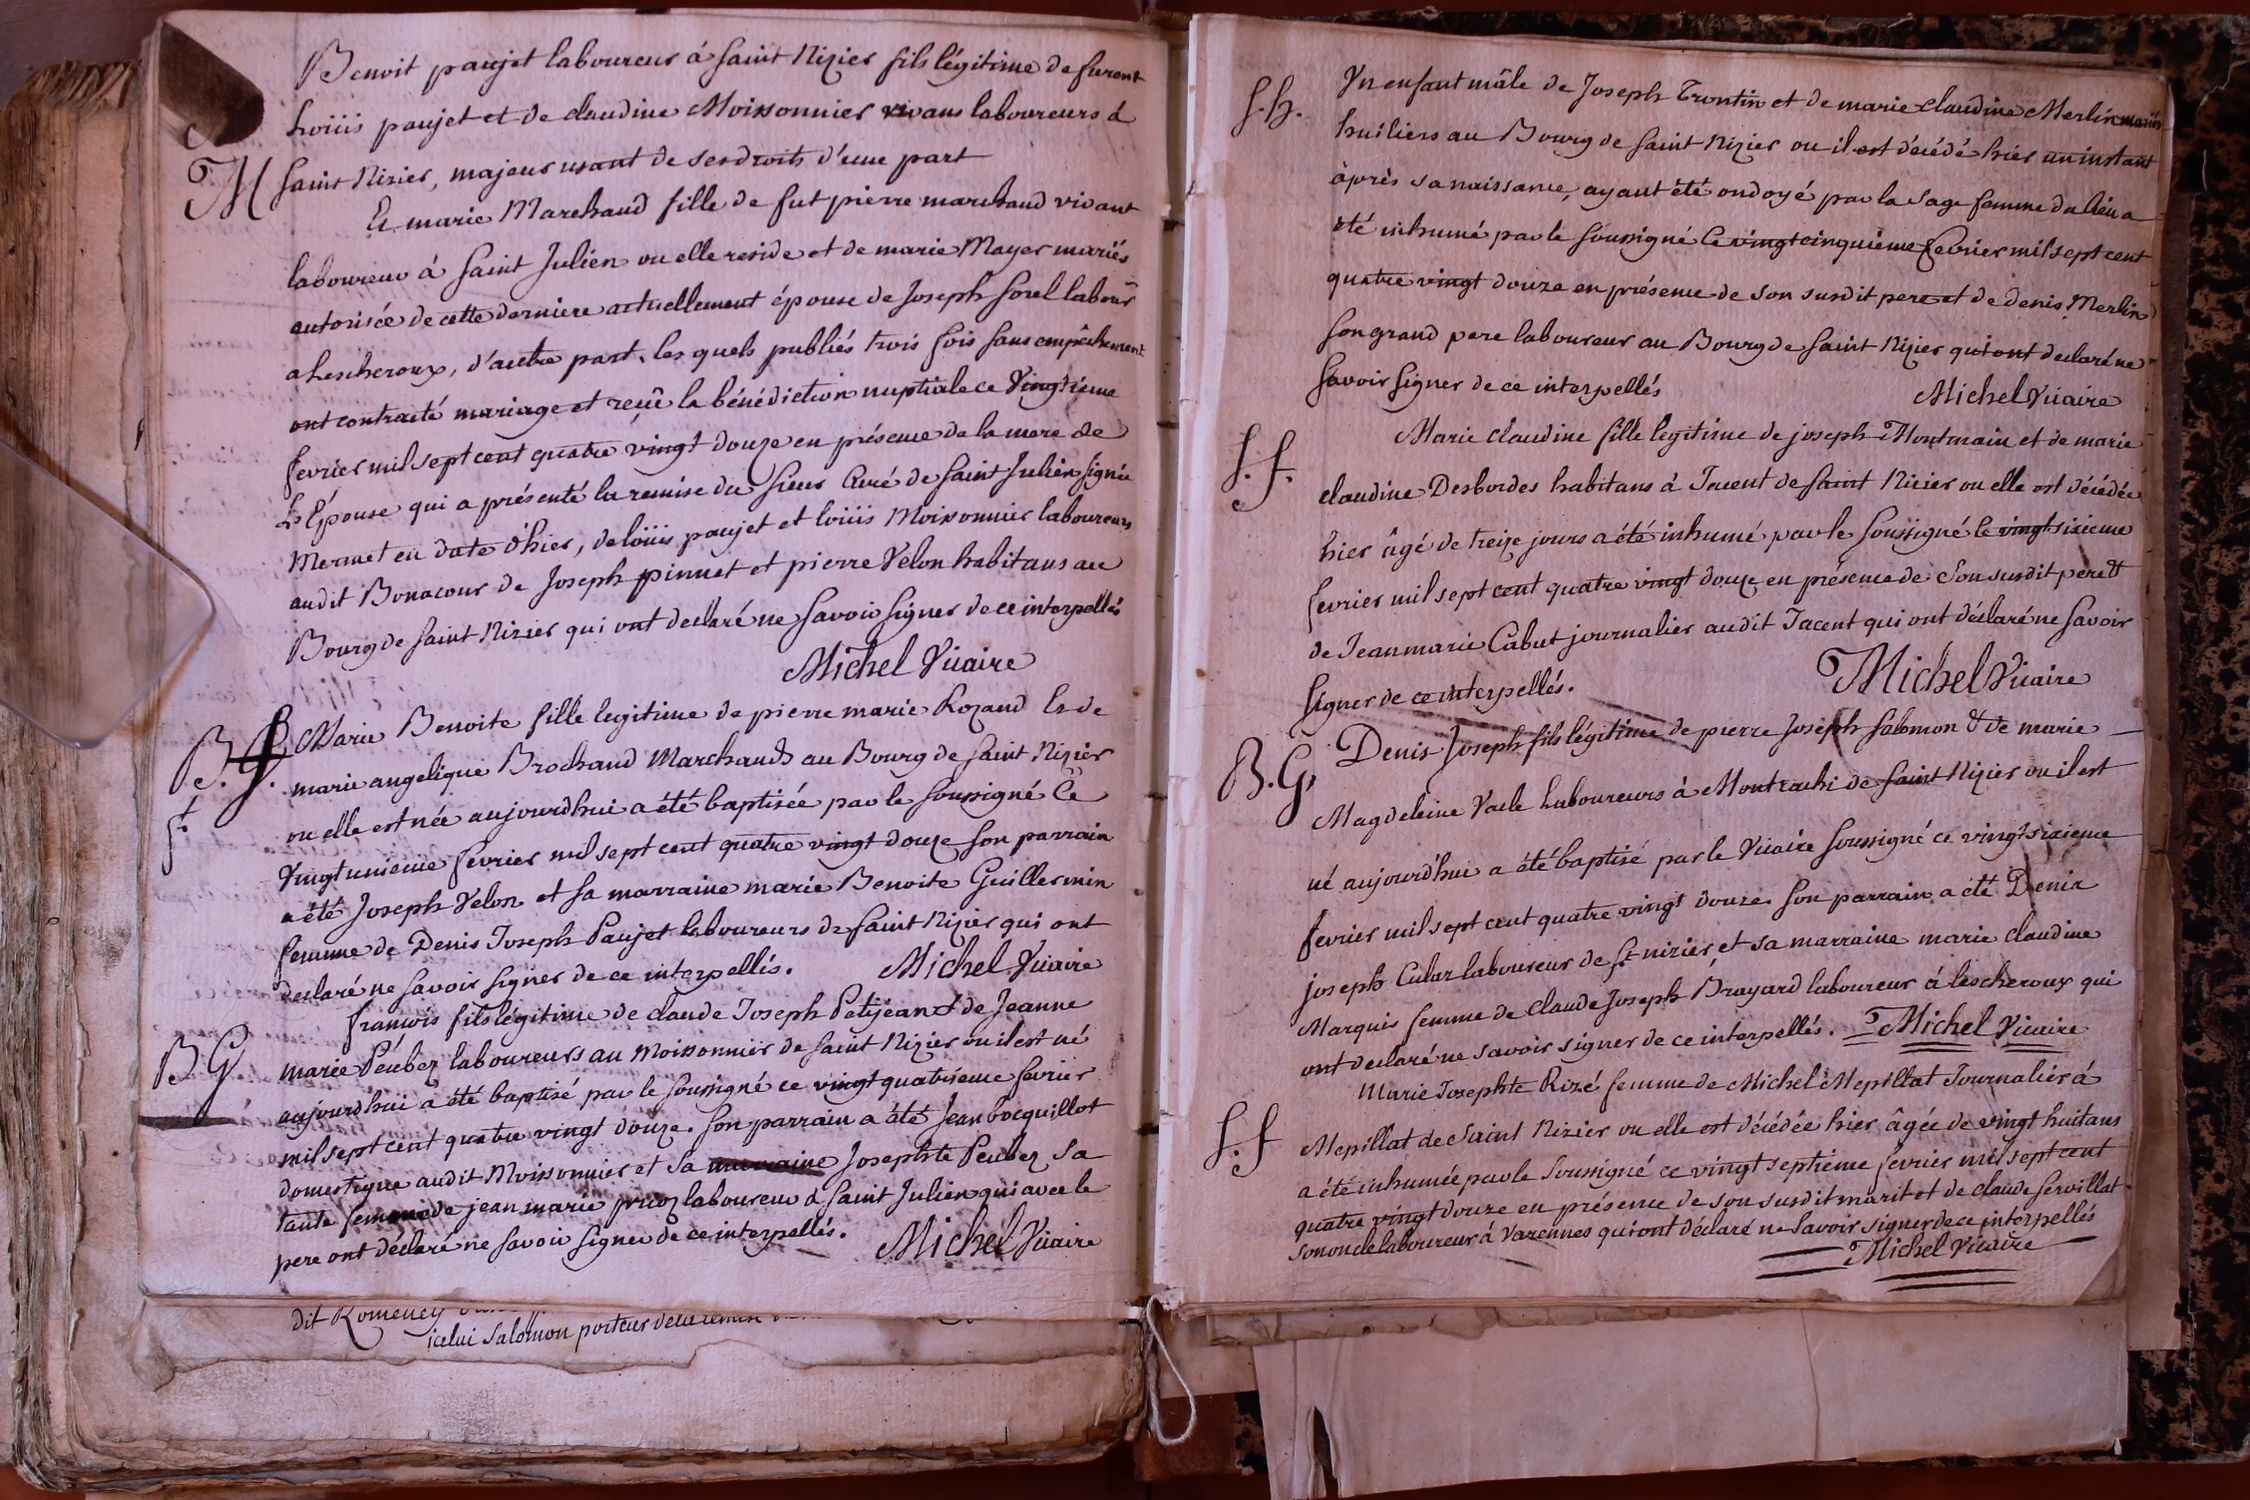 Benoit paujet laboureur á saint Nizier fils légitime de furent
loüis paujet et de claudine Moissonnier vivans laboureurs á
M
saint Nizier, majeur usant de ses droits d'une part
Et marie Marchaud fille de fut pierre marchaud vivant
laboureur á saint Julien ou elle reside et de marie Mayer mariés
autorisée de cette derniere actuellement épouse de Joseph sorel labour
a Lescheroux, d'autre part, les quels publiés trois fois sans empêchement
ont contracté mariage et reçû la bénédiction nuptiale ce vingtieme
fevrier mil sept cent quatre vingt douze en présence de la mere de
L'Épouse qui a présenté la remise du sieur Curé de saint Julien signée
Mermet en date d'hier, de loüis paujet et loüis Moissonnier laboureurs
audit Bonacour de Joseph pinnet et pierre Velon habitans au
Bourg de saint Nizier qui ont declaré ne savoir signer de ce interpellés
Michel Vicaire
B. G.
f.
Marie Benoite fille legitime de pierre marie Rozand Et de
marie angelique Brochand Marchands au Bourg de saint Nizier
ou elle est née aujourdhui a été baptisée par le soussigné Ce
vingt unieme fevrier mil sept cent quatre vingt douze son parrain
a été Joseph Velon et sa marraine marie Benoite Guillermin
femme de Denis Joseph Paujet laboureurs de saint Nizier qui ont
declaré ne savoir signer de ce interpellés. Michel Vicaire
françois fils légitime de claude Joseph Petitjean et de Jeanne
B G
marie Peubez laboureurs au Moissonnier de saint Nizier ou il est né
aujourdhui a été baptisé par le soussigné ce vingt quatrieme fevrier
mil sept cent quatre vingt douze. son parrain a été Jean bocquillot
domestique audit Moissonnier et sa marraine Josephte Peubez sa
tante femme de jean marie pricoz laboureur á saint Julien qui avec le
pere ont déclaré ne savoir signer de ce interpellés. Michel Vicaire
dit Romeney
icelui Salomon porteur de
S. G.
Un enfant mâle de Joseph Trontin et de marie claudine Merlin mariés
huiliers au Bourg de saint Nizier ou il est décédé hier un instant
après sa naissance, ayant été ondoyé par la sage femme du lieu a
été inhumé par le soussigné le vingt cinquieme fevrier mil sept cent
quatre vingt douze en présence de son susdit pere et de denis Merlin
son grand pere laboureur au Bourg de saint Nizier qui ont declaré ne
savoir signer de ce interpellés Michel Vicaire
S. f.
Marie claudine fille legitime de joseph Montmain et de marie
claudine Desbordes habitans á Tacent de saint Nizier ou elle est décédée
hier âgé de treize jours a été inhumé par le soussigné le vingt sixieme
fevrier mil sept cent quatre vingt douze en présence de son susdit pere et
de Jean marie Cabut journalier audit Tacent qui ont déclaré ne savoir
signer de ce interpellés. Michel Vicaire
B. G.
Denis Joseph fils légitime de pierre Joseph salomon & de marie
Magdeleine Vaile laboureurs á Montrachi de saint Nizier ou il est
né aujourd'hui a été baptisé par le Vicaire soussigné ce vingt sixieme
fevrier mil sept cent quatre vingt douze. son parrain a été Denis
joseph Culaz laboureur de st nizier, et sa marraine marie claudine
Marquis femme de claude Joseph Brayard laboureur á lescheroux qui
ont declaré ne savoir signer de ce interpellés. Michel Vicaire
Marie Josephte Rizé femme de Michel Mepillat Journalier á
S. f
Mepillat de saint Nizier ou elle est décédée hier âgée de vingt huit ans
a été inhumée par le soussigné ce vingt septieme fevrier mil sept cent
quatre vingt douze en présence de son susdit marit et de claude servillat
son oncle laboureur á Varennes qui ont déclaré ne savoir signer de ce interpellés
Michel Vicaire